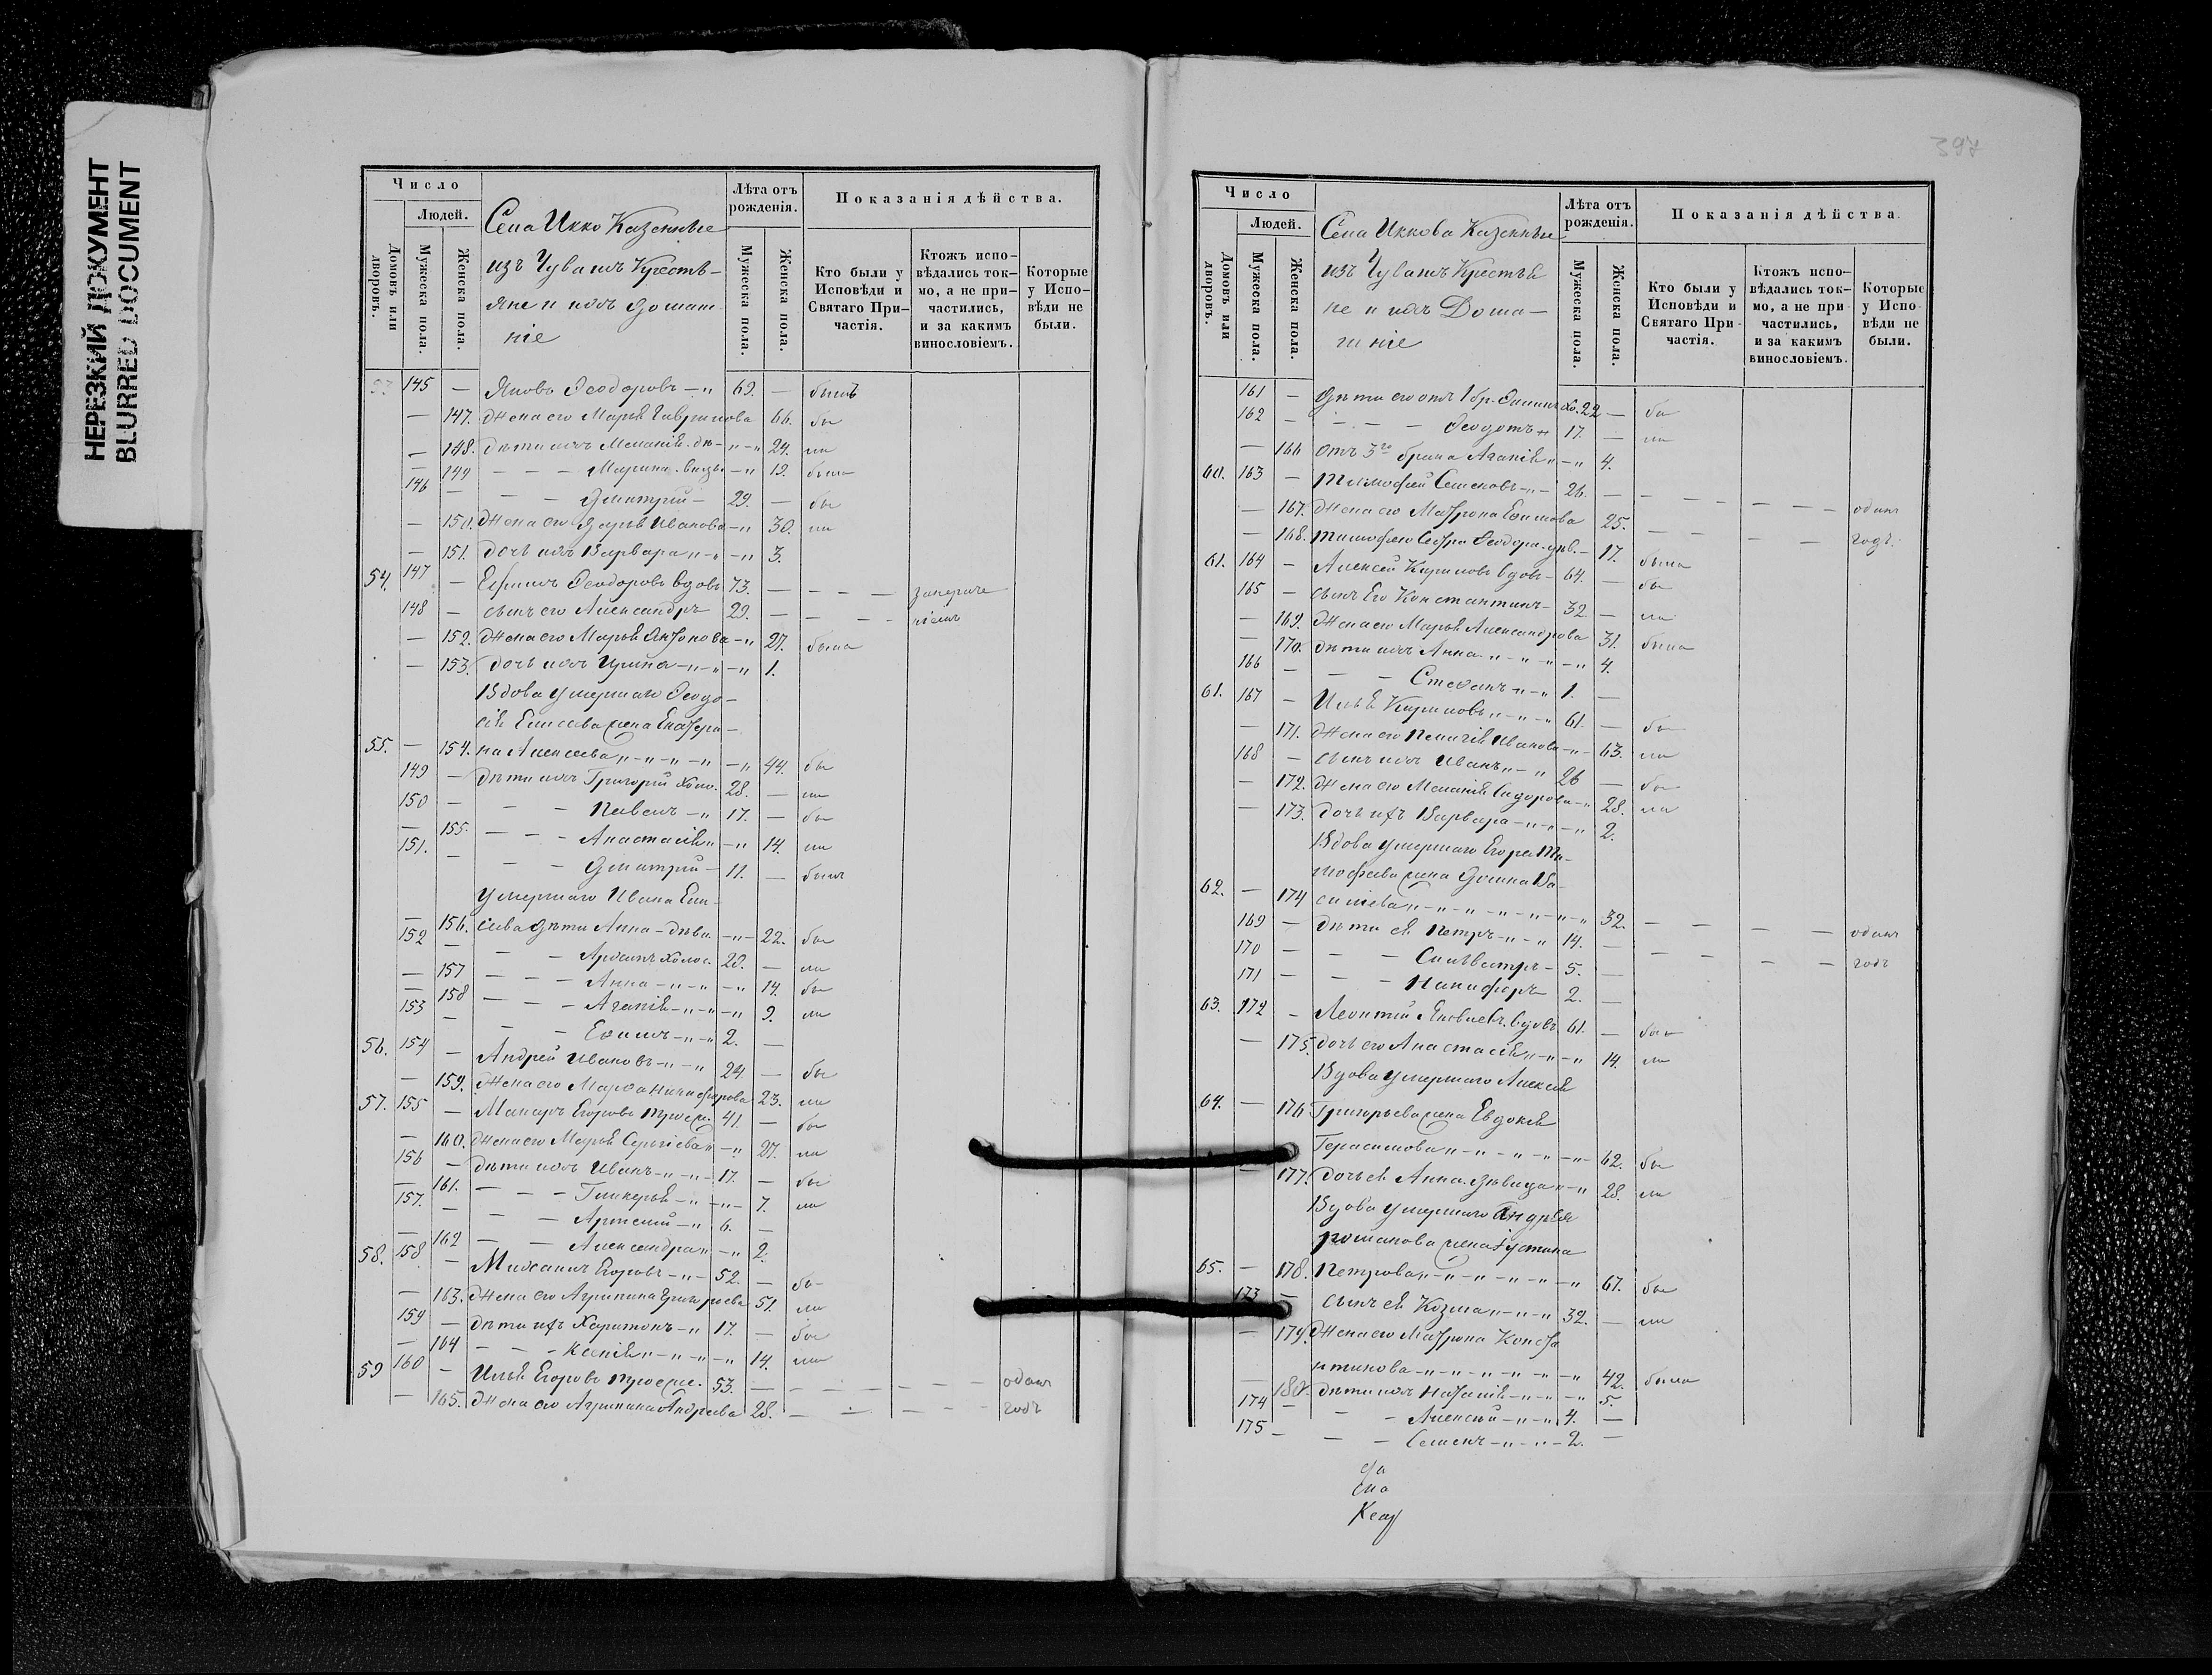 НЕРЕЗКИЙ ДОКУМЕНТ
BLURRED DOCUMENT
Число
Людей.
Домовъ или дворовъ.
Мужеска пола.
Женска пола.
Села Икко Казенные
изъ Чувашъ Крестья-
яне и ихъ домаш
ніе
Лѣта отъ рожденія.
Мужеска пола.
Женска пола.
Показанія дѣйства.
Кто были у Исповѣди и Святаго При-частія.
Ктожъ испо-вѣдались ток-мо, а не при-частились, и за какимъ винословіемъ.
Которые у Испо-вѣди не были.
53. 145 — Яковъ Ѳеодоровъ — „ 69. — былъ
— 147. Жена его Марья Гаврилова 66. бы
— 148. дѣти ихъ Меланія дѣ- „ - „ 24. ли
— 149 — — — Марина - „ 19. была
146 — — — Дмитрій — 29. — бы
— 150. Жена его Дарья Иванова - „ 30. ли
— 151. дочь ихъ Варвара „ - „ - „ 3.
54. 147 — Ефимъ Ѳеодоровъ вдовъ 73. — — — —
148 — сынъ его Александръ 29. — — —
— 152. Жена его Марья Антонова - „ 27. была
— 153. дочь ихъ Ирина - „ - „ - „ 1.
Вдова умершаго Ѳеодо-
сія Елисеева жена Екатери-
55. — 154. на Алексеева „ - „ - „ - „ - „ 44. бы
149 — дѣти ихъ Григорій холо. 28. — ли
150 — — — Павелъ - „ 17. — бы
— 155. — — — Анастасія „ - „ 14. ли
151. — — — Дмитрій — 11. — былъ
умершаго Ивана Ели-
— 156. сеева дѣти Анна - дѣви. - „ - 22. бы
152 — — — холос. 20. — ли
— 157 — — — Анна - „ - „ - „ 14. бы
— 158 — — — Агапія - „ - „ - „ 9. ли
153 — — — Ефимъ - „ - „ 2. —
56. 154 — Андрей Ивановъ - „ - „ 24 — бы
— 159. Жена его Марѳа Никифорова 23. ли
57. 155 — Макаръ Егоровъ 41. — бы
— 160. Жена его Марья Сергіева „ - „ 27. ли
156 — дѣти ихъ Иванъ - „ - „ - 17. — бы
— 161. — — — Гликерья - „ - „ - 7. ли
157. — — — Артемій - „ 6. —
— 162 — — Александра „ - „ 2.
58. 158. — Михаилъ Егоровъ - „ - 52. — бы
— 163. Жена его Агрипина Григорьева 51. ли
159 — дѣти ихъ Харитонъ - „ 17. — бы
— 164 — — — Ксенія „ - „ - „ - „ 14. ли
59 160 — Илья Егоровъ 53. — — — — — — — одинъ
— 165. Жена его Агрипина Андреева 28. — — — — — годъ
397
Число
Людей.
Домовъ или дворовъ.
Мужеска пола.
Женска пола.
Села Иккова Казенные
изъ Чувашъ Крестья
не и ихъ Дома-
шніе
Лѣта отъ рожденія.
Мужеска пола.
Женска пола.
Показанія дѣйства.
Кто были у Исповѣди и Святаго При-частія.
Ктожъ испо-вѣдались ток-мо, а не при-частились, и за какимъ винословіемъ.
Которые у Испо-вѣди не были.
161 — Дѣти его отъ 1 бр. хо. 22 — бы
162 — - — — Ѳеодотъ „ 17. — ли
— 166 отъ 3го брака Агапія „ - „ 4.
60. 163 — Тимофей Семеновъ - „ - 26. — — — — — — — одинъ
— 167. Жена его Матрона Ефимова 25. — — — — годъ.
— 168. Тимофею сестра Ѳеодора. дѣв. - 17. была
61. 164 — Алексей Кириловъ вдовъ - 64. — бы
165 — сынъ Его Константинъ - 32 — ли
— 169. Жена его Марья Александрова 31. была
— 170. дѣти ихъ Анна. „ - „ - „ - „ 4.
166 — — — Стефанъ „ - „ 1. —
61. 167 — Илья Кириловъ „ - „ - „ 61. — бы
— 171. Жена его Пелагія Иванова - „ - 63. ли
168 — сынъ ихъ Иванъ „ - „ 26 — бы
— 172. Жена его Меланія Сидорова - „ 28. ли
— 173. дочь ихъ Варвара - „ - „ - „ 2.
Вдова умершаго Егора Ти-
мофеева жена Домна Ва-
62. — 174 силіева „ - „ - „ - „ - „ - „ 32. — — — — одинъ
169 — дѣти ея Петръ - „ - „ 14. — — — — — годъ
170 — — — Сильвестръ - 5. —
171 — — — Никифоръ 2. —
63. 172 — Леонтій Яковлевъ вдовъ 61. — бы
— 175. дочь его Анастасія „ - „ - „ 14. ли
Вдова умершаго Алексея
64. — 176 Григорьева жена Евдокія
Герасимова „ - „ - „ - „ - „ - 62. бы
— 177. дочь ея Анна. дѣвица „ - „ 28. ли
Вдова умершаго Андрея
Романова жена Іустина
65. — 178. Петрова „ - „ - „ - „ - „ - „ 67. бы
173 — сынъ ея Козма „ - „ - „ 32. — ли
— 179. Жена его Матрона Конста
нтинова - „ - „ - „ - „ - „ - „ 42. была
— 180. дѣти ихъ Наталія - „ - „ - „ 5.
174 — — — Алексей - „ - „ 4. —
175 — — — Семенъ - „ - „ - 2. —